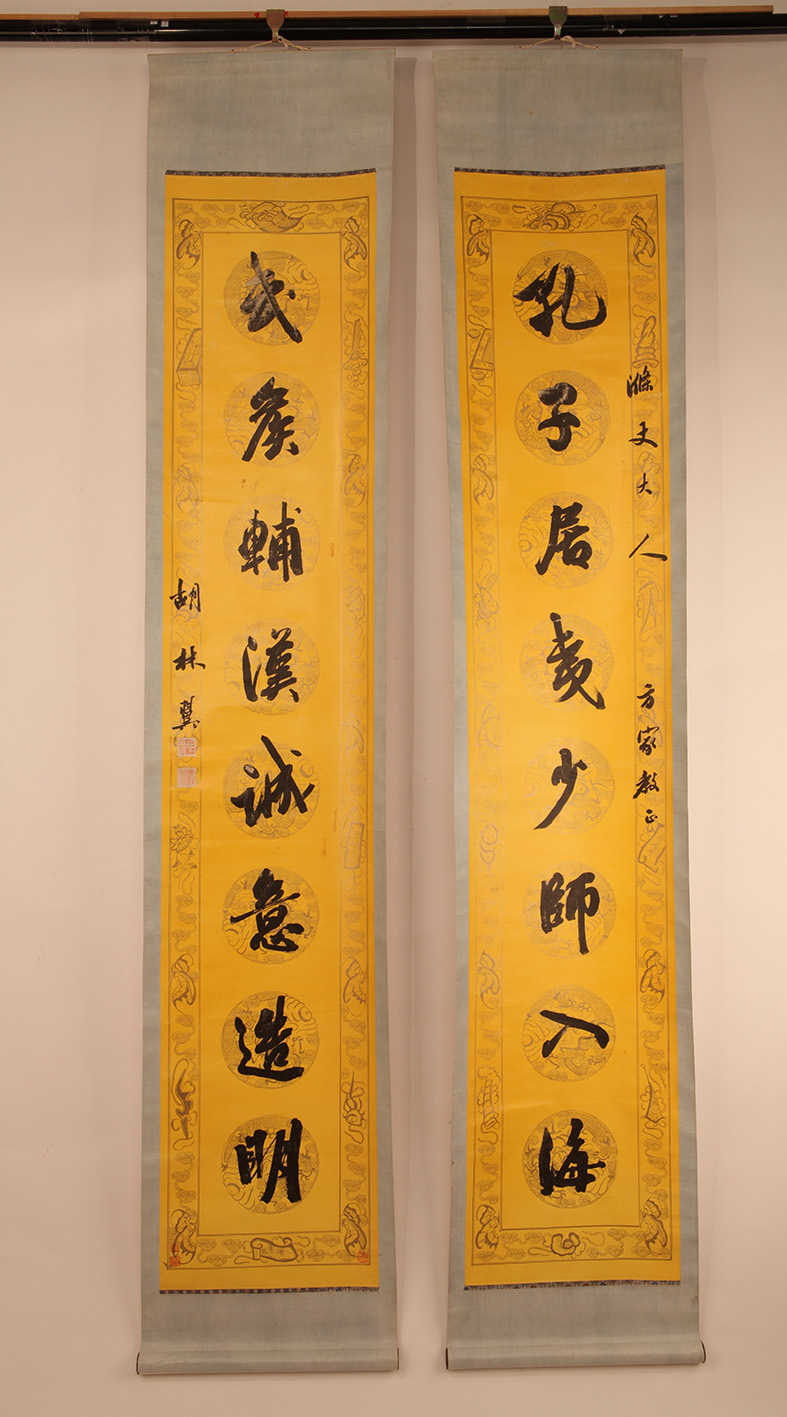 滌丈大人 方家教正
孔子居夷少師入海
武矦輔漢誠意造明
胡林翼